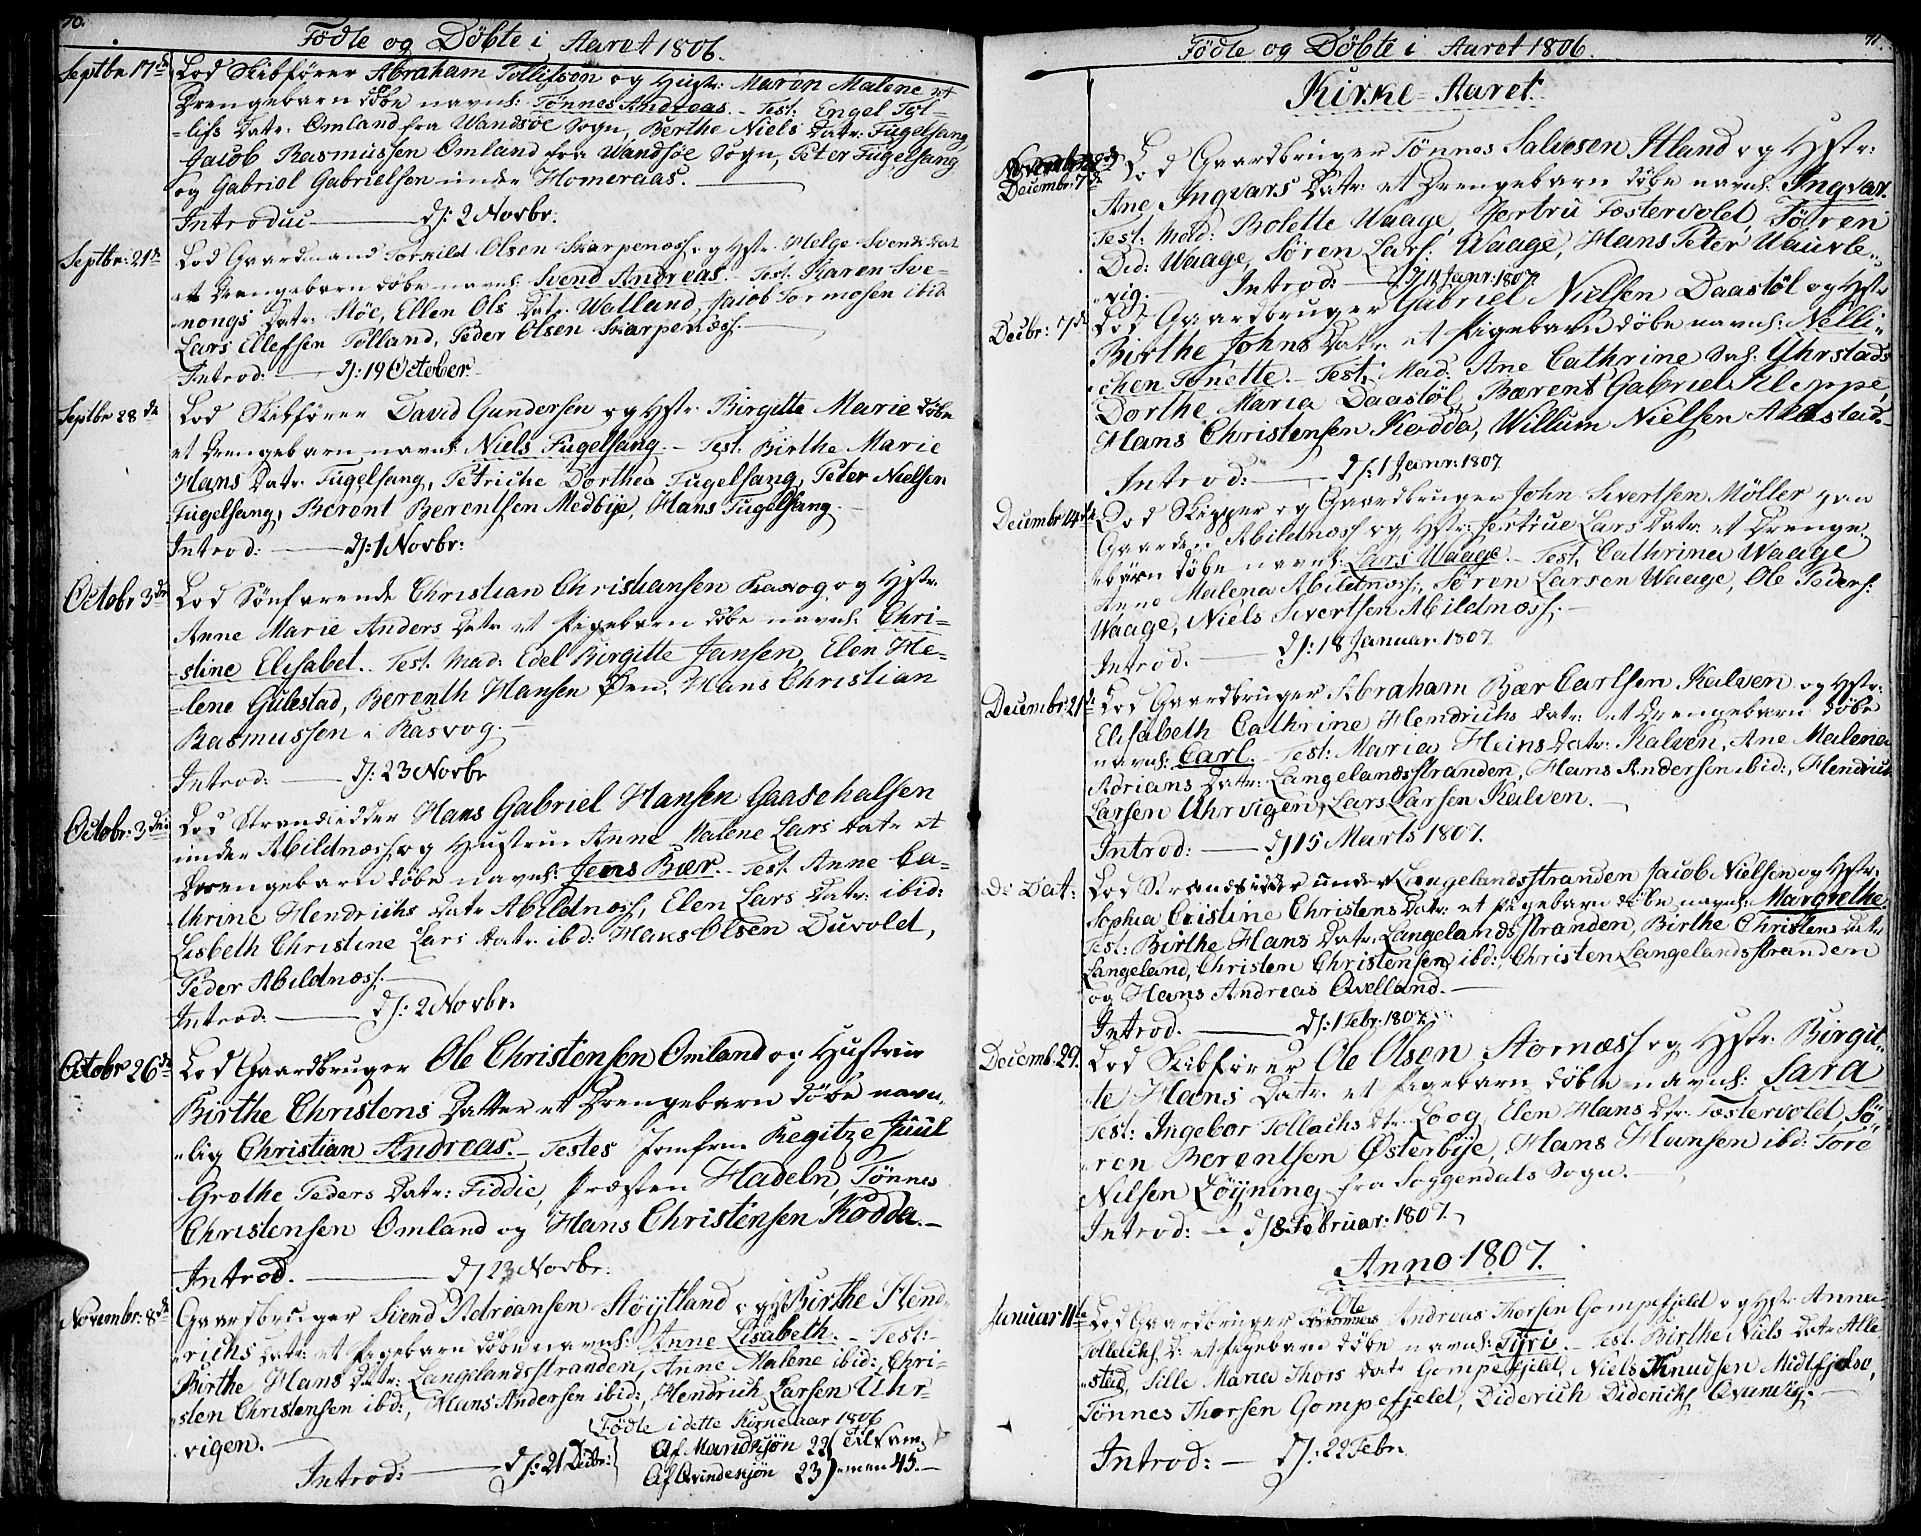 70.
Födte og Döbte i Aaret 1806.
Septbr 17de Lod Skibfører Abraham Tollifson og Hustr: Maren Malene et
Drengebarn døbe navnl: Tønnes Andreas. - Test: Engel Tol-
-lifs Datr. Omland fra Wandsøe Sogn, Berthe Niels Datr: Fugelsang
Jacob Rasmussen Omland fra Wandsøe Sogn, Peter Fugelsang
og Gabriel Gabrielsen under Homeraas.
Introduc d: 2 Novbr.
Septbr: 21de Lod Gaardmand Torkild Olsen Skarpenæss og Hstr. Helge Svends Dat
et Drengebarn døbe navnl: Svend Andreas. - Test. Karen Sve-
nongs Datr. Støe, Ellen Ols Datr. Watland, Jacob Tormosen ibid
Lars Ellefsen Tolland, Peder Olsen Skarpenæss.
Introd: d: 19 October.
Septbr 28de Lod Skibfører David Gundersen og Hstr. Birgitte Marie døbe
et Drengebarn navnl: Niels Fugelsang. - Test. Birthe Marie
Hans Datr. Fugelsang, Petriche Dorthea Fugelsang, Peter Nielsen
Fugelsang, Berent Berentsen Medbye, Hans Fugelsang.
Introd: d: 1 Novbr:
Octobr 3de Lod Sönfarende Christian Christiansen Rasvog og Hstr.
Anne Marie Anders Datr et Pigebarn døbe navnl: Chri-
-stine Elisabet. Test. Mad: Edel Birgitte Jansen, Elen He-
-lene Gulestad, Berenth Hansen Øen, Hans Christian
Rasmussen i Rasvog.
Introd: d: 23 Novbr
Octobr: 3die Lod Strandsidder Hans Gabriel Hansen Gaasehalsen
under Abildnæss og Hustrue Anne Malene Lars Datr et
Drengebarn døbe navnl: Jens Bær. - Test. Anne Ca-
thrine Hendrichs Datr Abildnæss, Elen Lars Datr: ibid:
Lisbeth Christine Lars Datr. ibd: Hans Olsen Duvold,
Peder Abildnæss.
Introd. d: 2 Novbr.
Octobr 26de Lod Gaardbruger Ole Christensen Omland og Hustrue
Birthe Christens Datter et Drengebarn döbe navn-
-lig Christian Andreas. - Testes Jomfrue Regitze Juul
Grethe Peders Datr: Fiddie, Præsten Hadeln, Tønnes
Christensen Omland og Hans Christensen Rødda.
Introd. d 23 Novbr.
Novembr: 8de Gaardbruger Svend Adriansen Høytland og H Birthe Hend-
richs Datr: et Pigebarn döbe navnl: Anne Lisabeth. - Test:
Birthe Hans Datr: Langelandsstranden, Anne Malene ibid:, Chri-
sten Christensen ibd:, Hans Andersen ibid:, Hendrich Larsen Uhr-
vigen.
Födte i dette Kirkeaar 1806
Af Mandkjön 22 tilsam-
Introd: d: 21 Decbr: Af Qvindekjön 23 -men 45.
71.
Födte og Döbte i Aaret 1806
Kirke-Aaret.
Decembr: 7de Lod Gaardbruger Tønnes Salvesen Itland og Hstr:
Ane Ingvars Datr: et Drengebarn döbe navnl. Ingvar.
Test: Mad: Bolette Waage, Jertru Fæstervold, Sören
Did: Waage, Søren Lars: Waage, Hans Peter Uaurle-
vig. Introd: d 11 Janr. 1807
Decbr: 7de Lod Gaardbruger Gabriel Nielsen Daastöl og Hstr
Birthe Johns Datr. et Pigebarn döbe navnl: Nelli-
chen Tonette. - Test: Mad: Ane Cathrine Sal. Uhrstads
Dorthe Maria Daastöl, Bærent Gabriel Kleppe,
Hans Christensen Rødda, Willum Nielsen Allestad.
Introd: d: 1 Janr: 1807
Decembr 14de Lod Skipper og Gaardbruger John Sivertsen Möller paa
Gaarden Abildnæss og Hstr: Jertrue Lars Datr. et Drenge-
-barn döbe navnl: Lars Waage. - Test. Cathrina Waage
Anne Malena Abildnæss, Søren Larsen Waage, Ole Peders:
Waage, Niels Sivertsen Abildnæss.
Introd. d: 18 Januar. 1807.
Decembr: 21de Lod Gaardbruger Abraham Bær Carlsen Kalven og Hstr:
Elisabeth Cathrine Hendrichs Datr: et Drengebarn döbe
navnl: Carl. Test: Maria Heins Datr: Kalven, Ane Malena
Adrians Datr: Langelandsstranden, Hans Andersen ibid:, Hendrich
Larsen Uhrvigen, Lars Larsen Kalven.
Introd: d 15 Marts 1807.
do Dat: Lod Strandsidder under Langelandsstranden Jacob Nielsen og Hstr.
Sophia Cristine Christens Datr: et Pigebarn döbe navnl: Margrethe.
Test: Birthe Hans Datr. Langelandsstranden, Birthe Christens Datr
Langeland, Christen Christensen ibd:, Christen Langelandsstranden
og Hans Andreas Qvelland.
Introd. d: 1 Febr. 1807.
Decemb. 29. Lod Skibfører Ole Olsen Stornæss og Hstr. Birgit-
te Hans Datr. et Pigebarn döbe navnl: Sara
Test: Ingebor Tollachs Dtr. Loog, Elen Hans Dtr. Fæstervold, Sö-
ren Berentsen Østerbye, Hans Hansen ibd: Tore
Nilsen Løyning fra Soggendals Sogn.
Introd: d 8 Februar. 1807.
Anno 1807.
Januar 11te Lod Gaardbruger Ole Andreas Thorsen Gompefjeld og Hstr Anna
Tolleichs D: et Pigebarn döbe navnl: Tyri. - Test. Birthe Niels Datr Alle-
stad, Sille Maria Thors Datr Gompefjeld, Niels Knudsen Midtfjelse,
Tönnes Thorsen Gompefjeld, Diderich Diderichs Qvanvig.
Introd: d: 22 Febr.